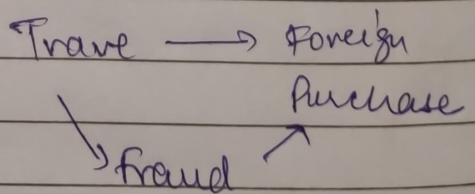 Trave → Foreign
Purchase
Fraud